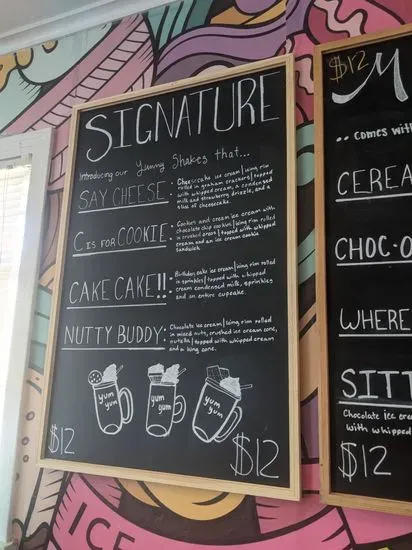 SIGNATURE
Introducing our Yummy Shakes that...
SAY CHEESE: Cheesecake ice cream/icing rim
rolled in graham crackers/topped
with whipped cream, a condensed
milk and strawberry drizzle, and a
slice of cheesecake.
C IS FOR COOKIE: Cookies and cream ice cream with
chocolate chip cookies/icing rim rolled
in crushed oreos/topped with whipped
cream and an ice cream cookie
sandwich.
CAKE CAKE!!: Birthday cake ice cream/icing rim rolled
in sprinkles/topped with whipped
cream condensed milk, sprinkles
and an entire cupcake.
NUTTY BUDDY: Chocolate ice cream/icing rim rolled
in mixed nuts, crushed ice cream cone,
nutella/topped with whipped cream
and a icing cone.
yum yum
yum yum
yum yum
$12
$12
$12
M
.. comes with
CEREA
CHOC-O
WHERE
SITT
Chocolate ice crea
with whipped
$12
ICE